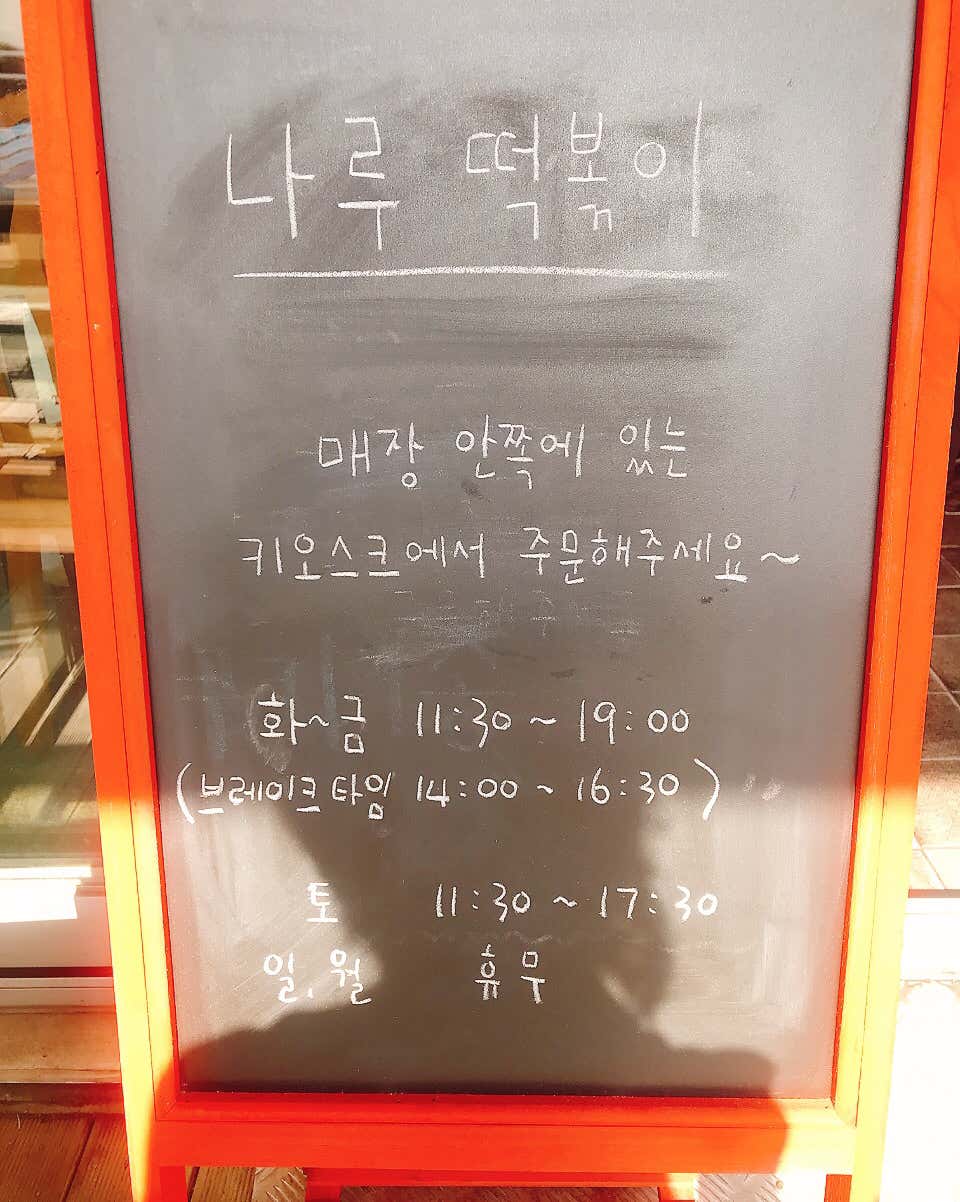 나루 떡볶이
매장 안쪽에 있는
키오스크에서 주문해주세요~
화~금 11:30 ~ 19:00
(브레이크타임 14:00 ~ 16:30)
토 11:30 ~ 17:30
일, 월 휴무